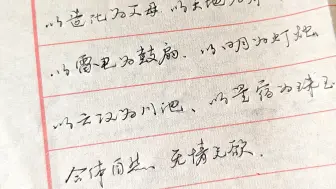 以造化为父母 以天地为
以雷电为鼓扇、以日月为灯烛
以云汉为川池、以星宿为珠玉
合体自然、无情无欲.